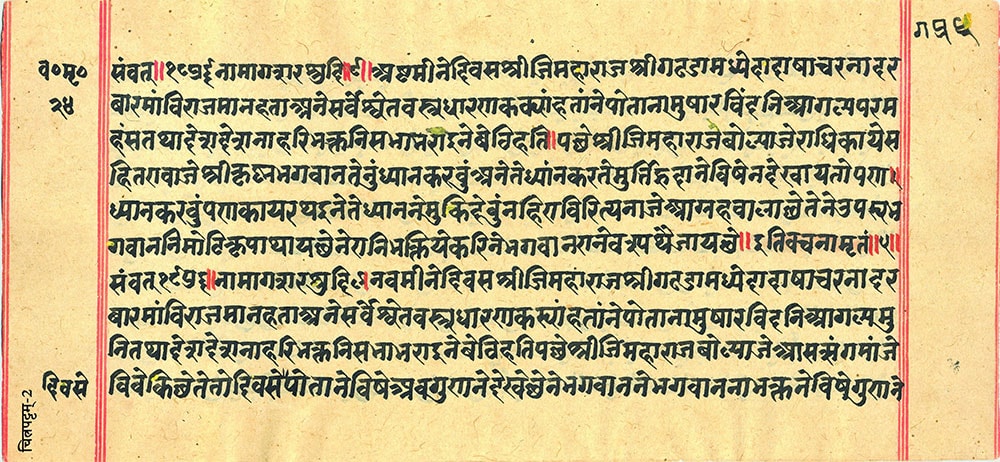 गप६
व०मृ० संवत्॥१८७६नामागशरशुदि॥८॥अष्टमीनेदिवसश्रीजिमहाराजश्रीगढडामध्येदादाषाचरनादर
२४ बारमांविराजमानहताअनेसर्वेश्वेतवस्त्रधारणकर्यांहतांनेपोतानामुषारविंदनिआगल्यपरम
हंसतथादेशदेशनाहरिभक्तनिसभाभराइनेबेठिहति॥पछेश्रीजिमहाराजबोल्याजेराधिकायेस
हितएवाजेश्रीकृष्णभगवानतेनुंध्यानकरवुंअनेतेध्यांनकरतेमुर्तिहृदानेविषेनदेखायतोपण॥
ध्यानकरवुंपणकायरथइनेतेध्याननेमुकिदेवुंनहिएविरित्यनाजेआग्रहवालाछेतेनेउपरभ
गवाननिमोटिकृपाथायछेनेएनिभक्तियेकरिनेभगवानएनेवशथैजायछे॥इतिवचनामृतं॥५॥
संवत्१८७६॥नामागशरशुदि९नवमीनेदिवसश्रीजिमहाराजश्रीगढडामध्येदादाषाचरनादर
बारमांविराजमानहताअनेसर्वेश्वेतवस्त्रधारणकर्यांहतांनेपोतानामुषारविंदनिआगल्यमु
नितथादेशदेशनाहरिभक्तनिसभाभराइनेबेठिहतिपछेश्रीजिमहाराजबोल्याजेआसत्संगमांजे
दिवसे विवेकिछेतेतोदिवसेपोतानेविषेअवगुणनेदेखेछेनेभगवाननेभगवाननाभक्तनेविषेगुणने
चित्रपट्टम्-2